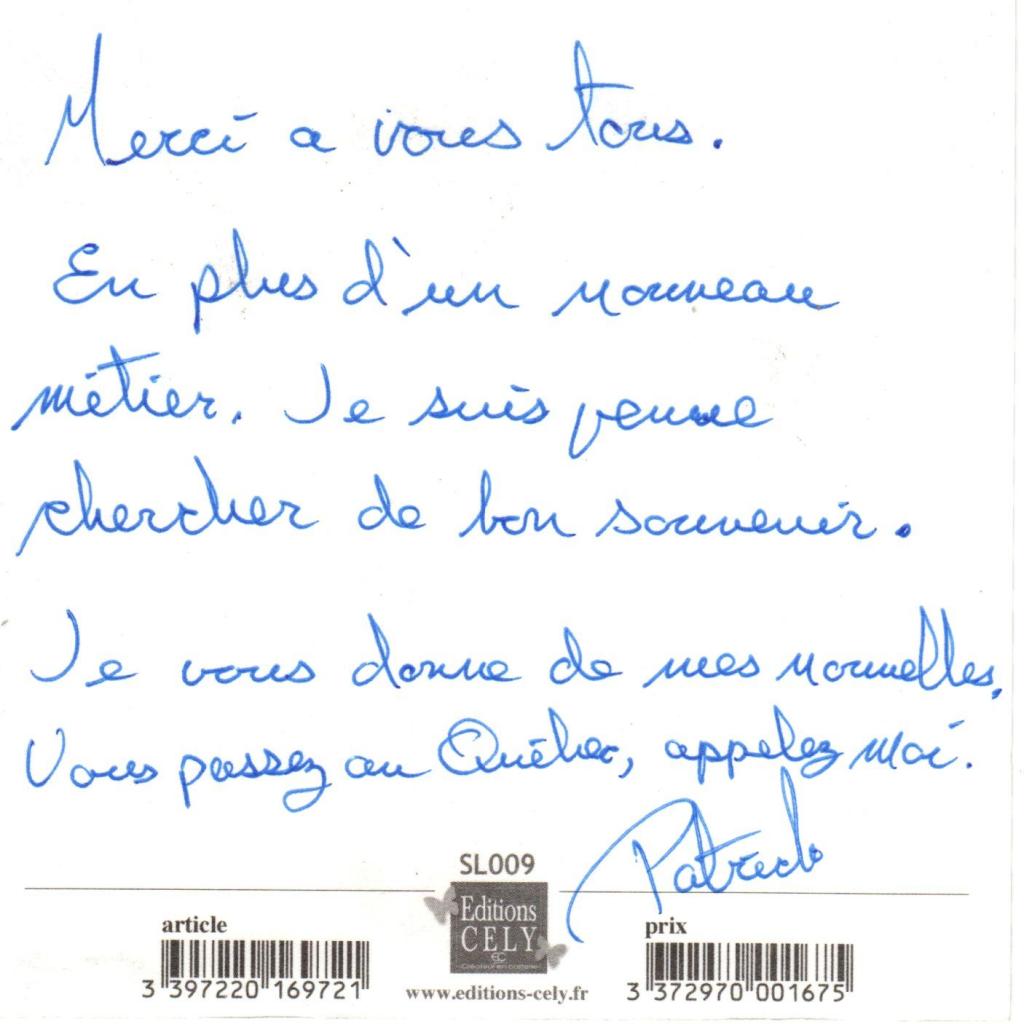 Merci a vous tous.
En plus d'un nouveau
métier. Je suis venue
chercher de bon souvenir.
Je vous donne de mes nouvelles.
Vous passez au Québec, appelez moi.
Patrick
SL009
Editions
CELY
EC
article
prix
3 397220 169721
www.editions-cely.fr
3 372970 001675